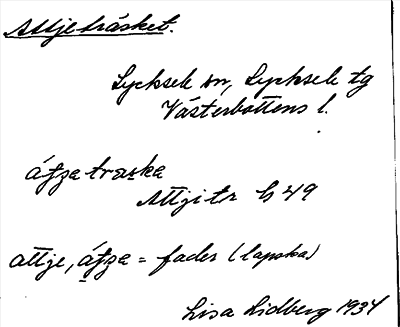 Attjeträsket.
Lycksele sn, Lycksele tg
Västerbottens l.
áʃʒa traska
Attji tr h 49
attje, áʃʒa = fader (lapska)
Lisa Lidberg 1934